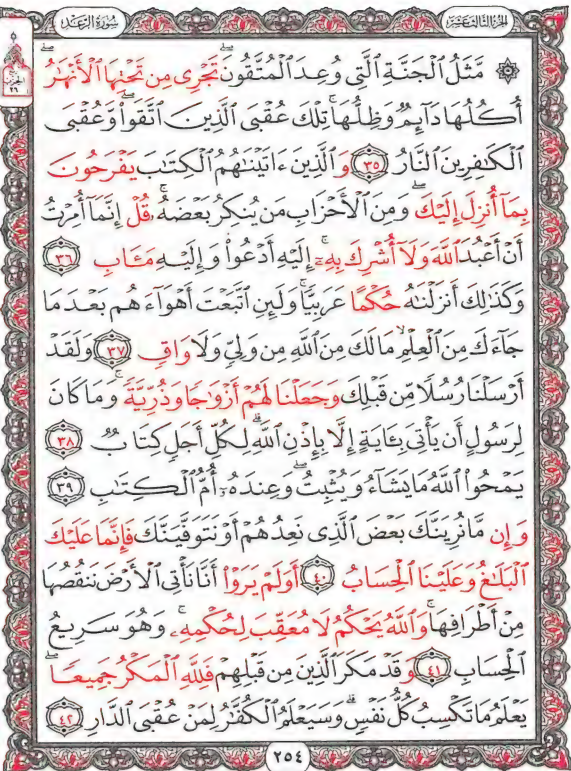 سُورَةُ الرَّعْدِ
الجُزْءُ الثَّالِثَ عَشَرَ
۞ مَّثَلُ ٱلْجَنَّةِ ٱلَّتِى وُعِدَ ٱلْمُتَّقُونَ ۖ تَجْرِى مِن تَحْتِهَا ٱلْأَنْهَٰرُ ۖ
أُكُلُهَا دَآئِمٌ وَظِلُّهَا ۚ تِلْكَ عُقْبَى ٱلَّذِينَ ٱتَّقَوا۟ ۖ وَّعُقْبَى
ٱلْكَٰفِرِينَ ٱلنَّارُ ٣٥ وَٱلَّذِينَ ءَاتَيْنَٰهُمُ ٱلْكِتَٰبَ يَفْرَحُونَ
بِمَآ أُنزِلَ إِلَيْكَ ۖ وَمِنَ ٱلْأَحْزَابِ مَن يُنكِرُ بَعْضَهُۥ ۚ قُلْ إِنَّمَآ أُمِرْتُ
أَنْ أَعْبُدَ ٱللَّهَ وَلَآ أُشْرِكَ بِهِۦٓ ۚ إِلَيْهِ أَدْعُوا۟ وَإِلَيْهِ مَـَٔابِ ٣٦
وَكَذَٰلِكَ أَنزَلْنَٰهُ حُكْمًا عَرَبِيًّا ۚ وَلَئِنِ ٱتَّبَعْتَ أَهْوَآءَهُم بَعْدَ مَا
جَآءَكَ مِنَ ٱلْعِلْمِ مَا لَكَ مِنَ ٱللَّهِ مِن وَلِىٍّ وَلَا وَاقٍ ٣٧ وَلَقَدْ
أَرْسَلْنَا رُسُلًا مِّن قَبْلِكَ وَجَعَلْنَا لَهُمْ أَزْوَٰجًا وَذُرِّيَّةً ۚ وَمَا كَانَ
لِرَسُولٍ أَن يَأْتِىَ بِـَٔايَةٍ إِلَّا بِإِذْنِ ٱللَّهِ ۗ لِكُلِّ أَجَلٍ كِتَابٌ ٣٨
يَمْحُوا۟ ٱللَّهُ مَا يَشَآءُ وَيُثْبِتُ ۖ وَعِندَهُۥٓ أُمُّ ٱلْكِتَٰبِ ٣٩
وَإِن مَّا نُرِيَنَّكَ بَعْضَ ٱلَّذِى نَعِدُهُمْ أَوْ نَتَوَفَّيَنَّكَ فَإِنَّمَا عَلَيْكَ
ٱلْبَلَٰغُ وَعَلَيْنَا ٱلْحِسَابُ ٤٠ أَوَلَمْ يَرَوْا۟ أَنَّا نَأْتِى ٱلْأَرْضَ نَنقُصُهَا
مِنْ أَطْرَافِهَا ۚ وَٱللَّهُ يَحْكُمُ لَا مُعَقِّبَ لِحُكْمِهِۦ ۚ وَهُوَ سَرِيعُ
ٱلْحِسَابِ ٤١ وَقَدْ مَكَرَ ٱلَّذِينَ مِن قَبْلِهِمْ فَلِلَّهِ ٱلْمَكْرُ جَمِيعًا ۖ
يَعْلَمُ مَا تَكْسِبُ كُلُّ نَفْسٍ ۗ وَسَيَعْلَمُ ٱلْكُفَّٰرُ لِمَنْ عُقْبَى ٱلدَّارِ ٤٢
٢٥٤